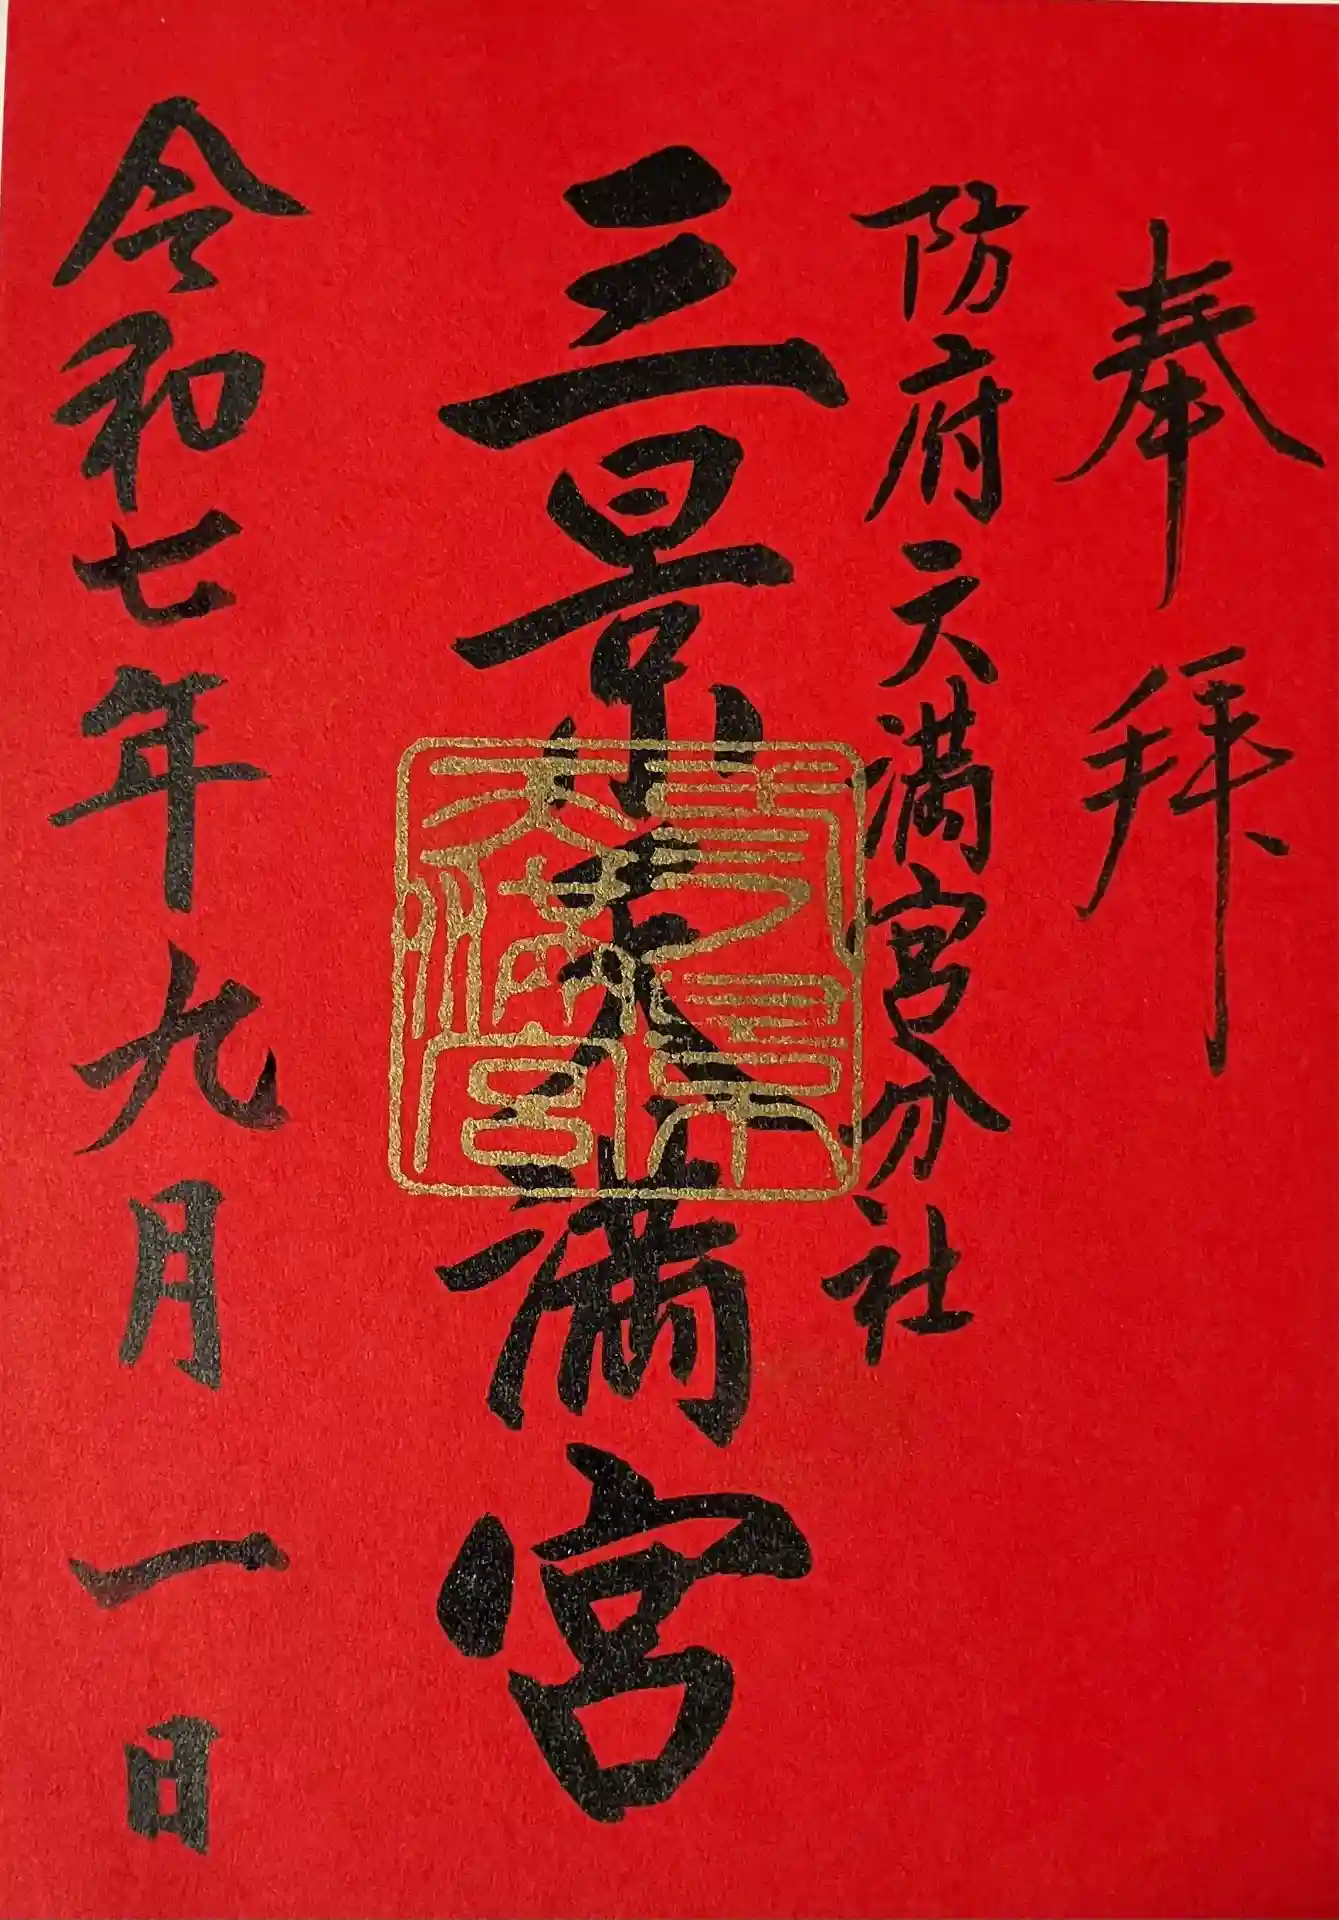 奉拝
防府天満宮分社
三景天満宮
令和七年九月一日
天満宮